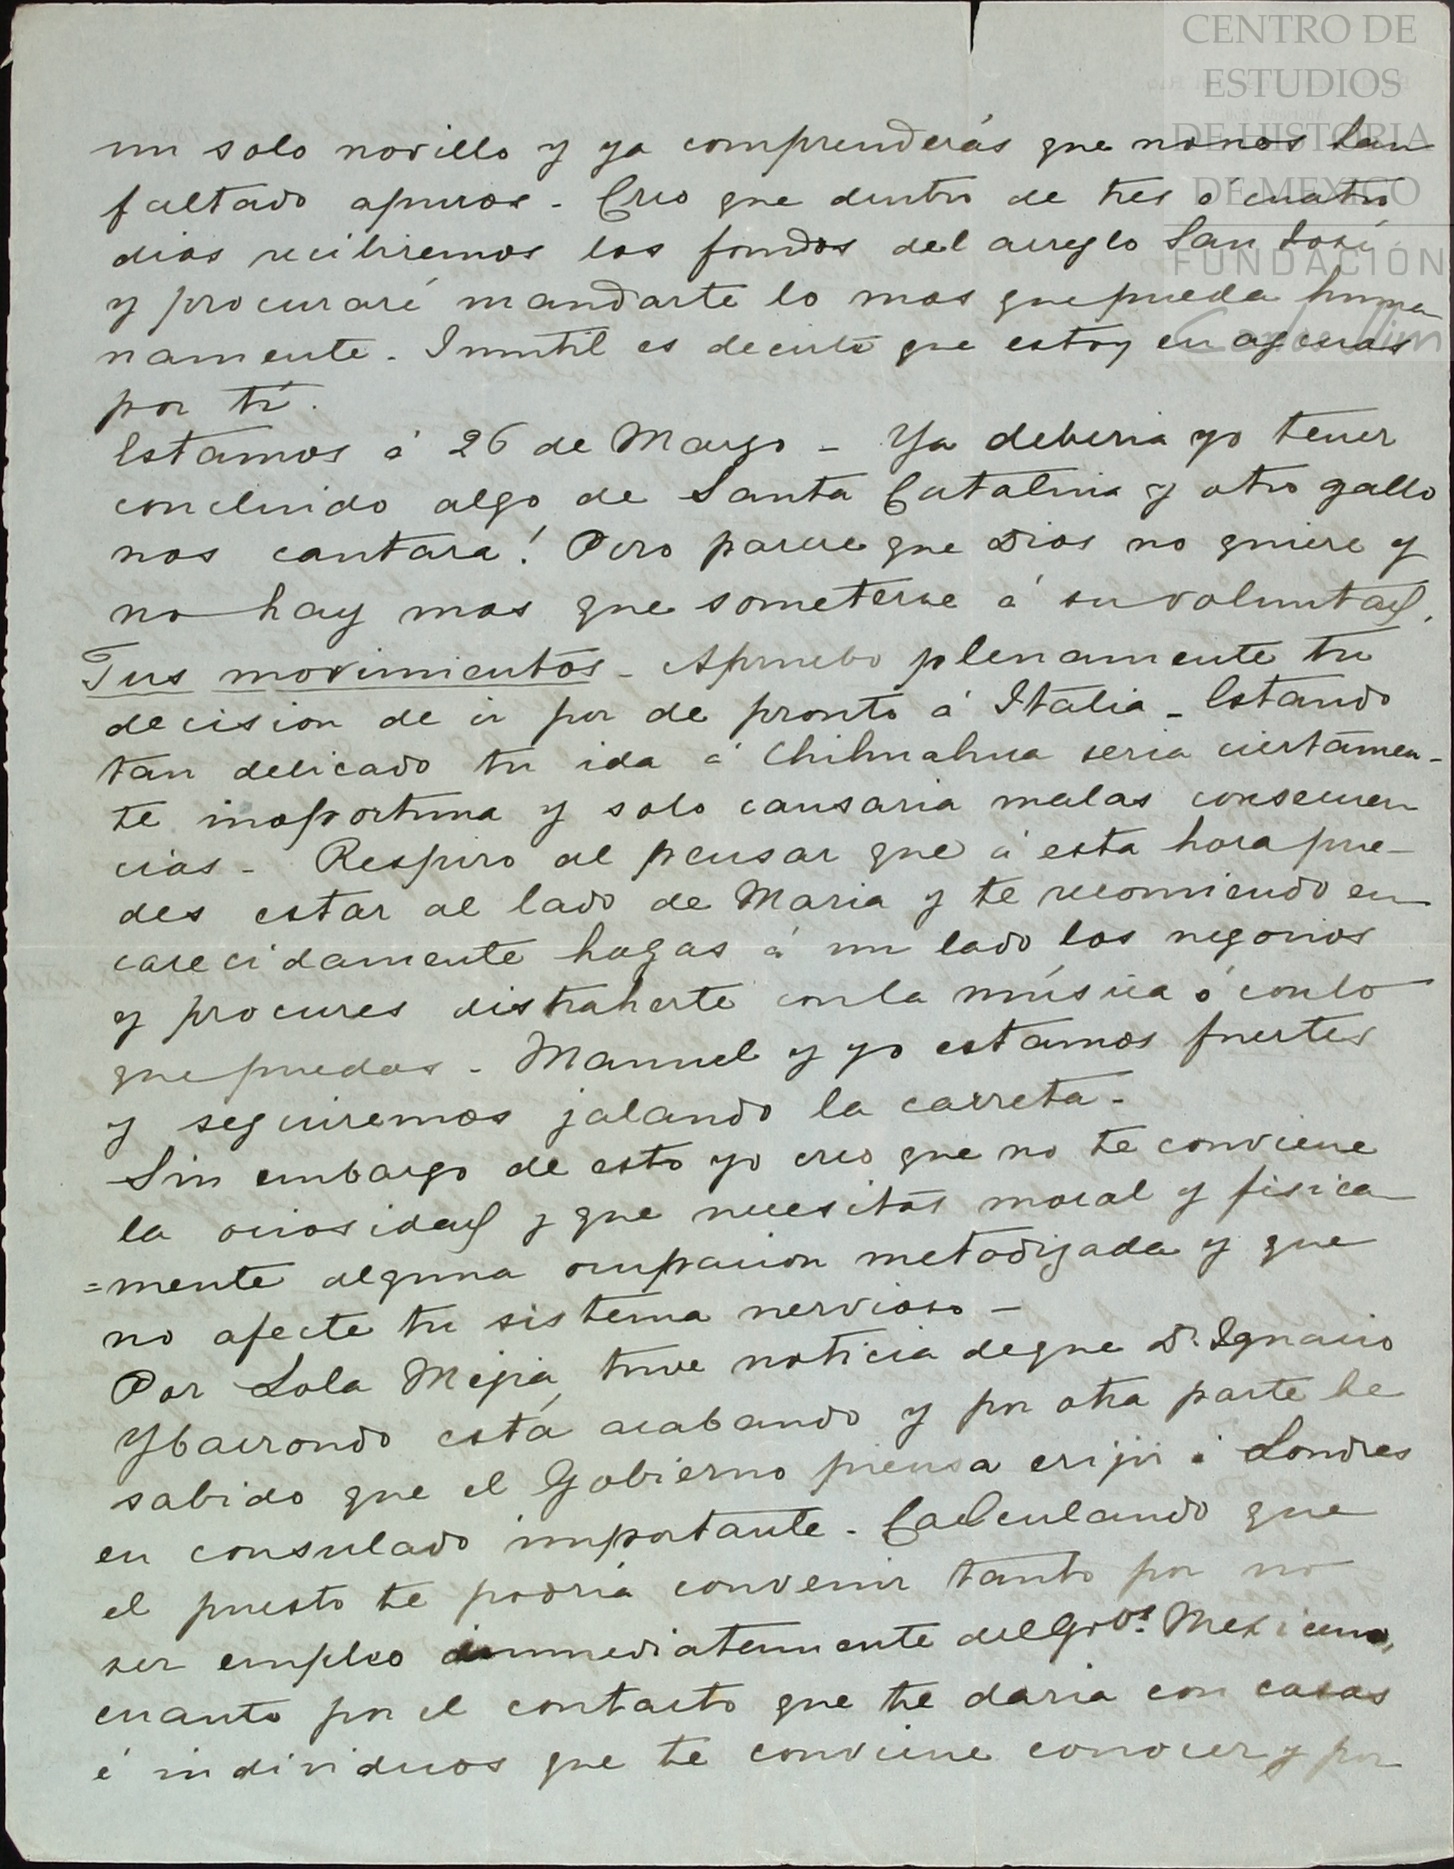 CENTRO DE
ESTUDIOS
DE HISTORIA
DE MEXICO
FUNDACIÓN
Carlos Slim
un solo novillo y ya comprenderás que no nos han
faltado apuros - Creo que dentro de tres ó cuatro
dias recibiremos los fondos del arreglo San José
y procuraré mandarte lo mas que pueda huma
namente - Inutil es decirte que estoy en ascuas
por tí.
Estamos á 26 de Marzo - Ya deberia yo tener
concluido algo de Santa Catalina y otro gallo
nos cantara! Pero parece que Dios no quiere y
no hay mas que someterse á su voluntad.
Tus movimientos - Apruebo plenamente tu
decision de ir por de pronto á Italia - Estando
tan delicado tu ida á Chihuahua seria ciertamen-
te inoportuna y solo causaria malas consecuen
cias - Respiro al pensar que á esta hora pue-
des estar al lado de Maria y te recomiendo en
carecidamente hagas á un lado los negocios
y procures distraherte con la música ó con lo
que puedas - Manuel y yo estamos fuertes
y seguiremos jalando la carreta -
Sin embargo de esto yo creo que no te conviene
la ociosidad y que necesitas moral y fisica
=mente alguna ocupacion metodizada y que
no afecte tu sistema nervioso -
Por Lola Mejia, tuve noticia de que D. Ignacio
Ybarrondo está acabando y por otra parte he
sabido que el Gobierno piensa erijir á Londres
en consulado importante - Calculando que
el puesto te podria convenir tanto por no
ser empleo inmediatamente del Gvo. Mexicano,
cuanto por el contacto que te daria con casas
é individuos que te conviene conocer y por